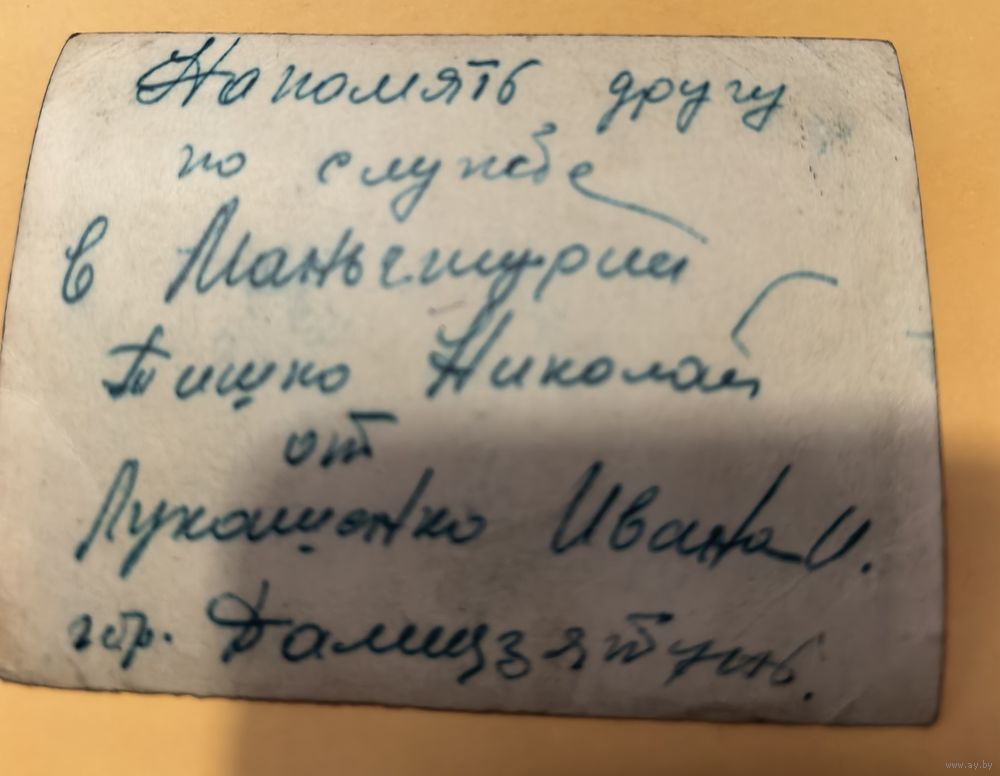 На помять другу
по службе
в Маньчжурии
Тишко Николай
от
Лукашенко Ивана И.
гор.
www.ay.by